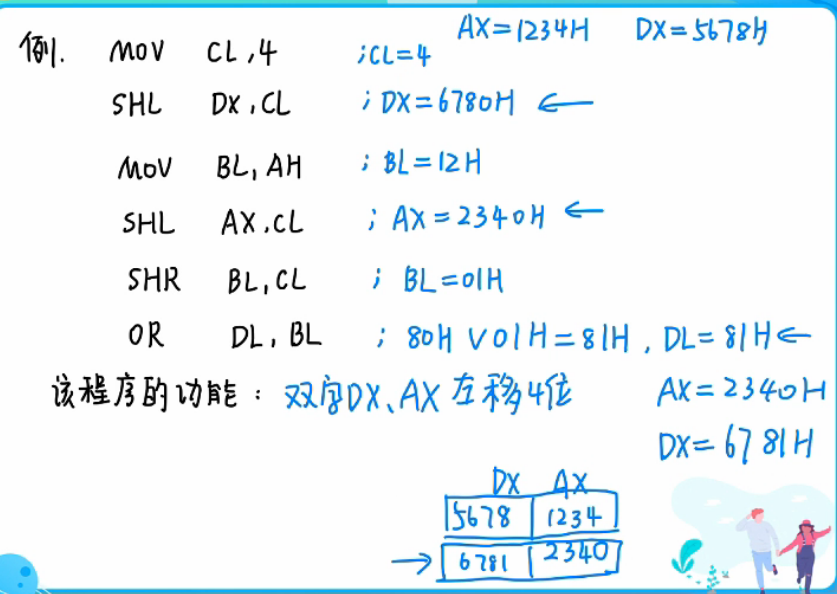 AX=1234H DX=5678H
例. MOV CL,4 ;CL=4
SHL DX,CL ;DX=6780H ←
MOV BL,AH ;BL=12H
SHL AX,CL ;AX=2340H ←
SHR BL,CL ;BL=01H
OR DL,BL ;80H∨01H=81H,DL=81H←
该程序的功能:双字DX、AX左移4位 AX=2340H
DX=6781H
DX AX
5678 1234
→ 6781 2340